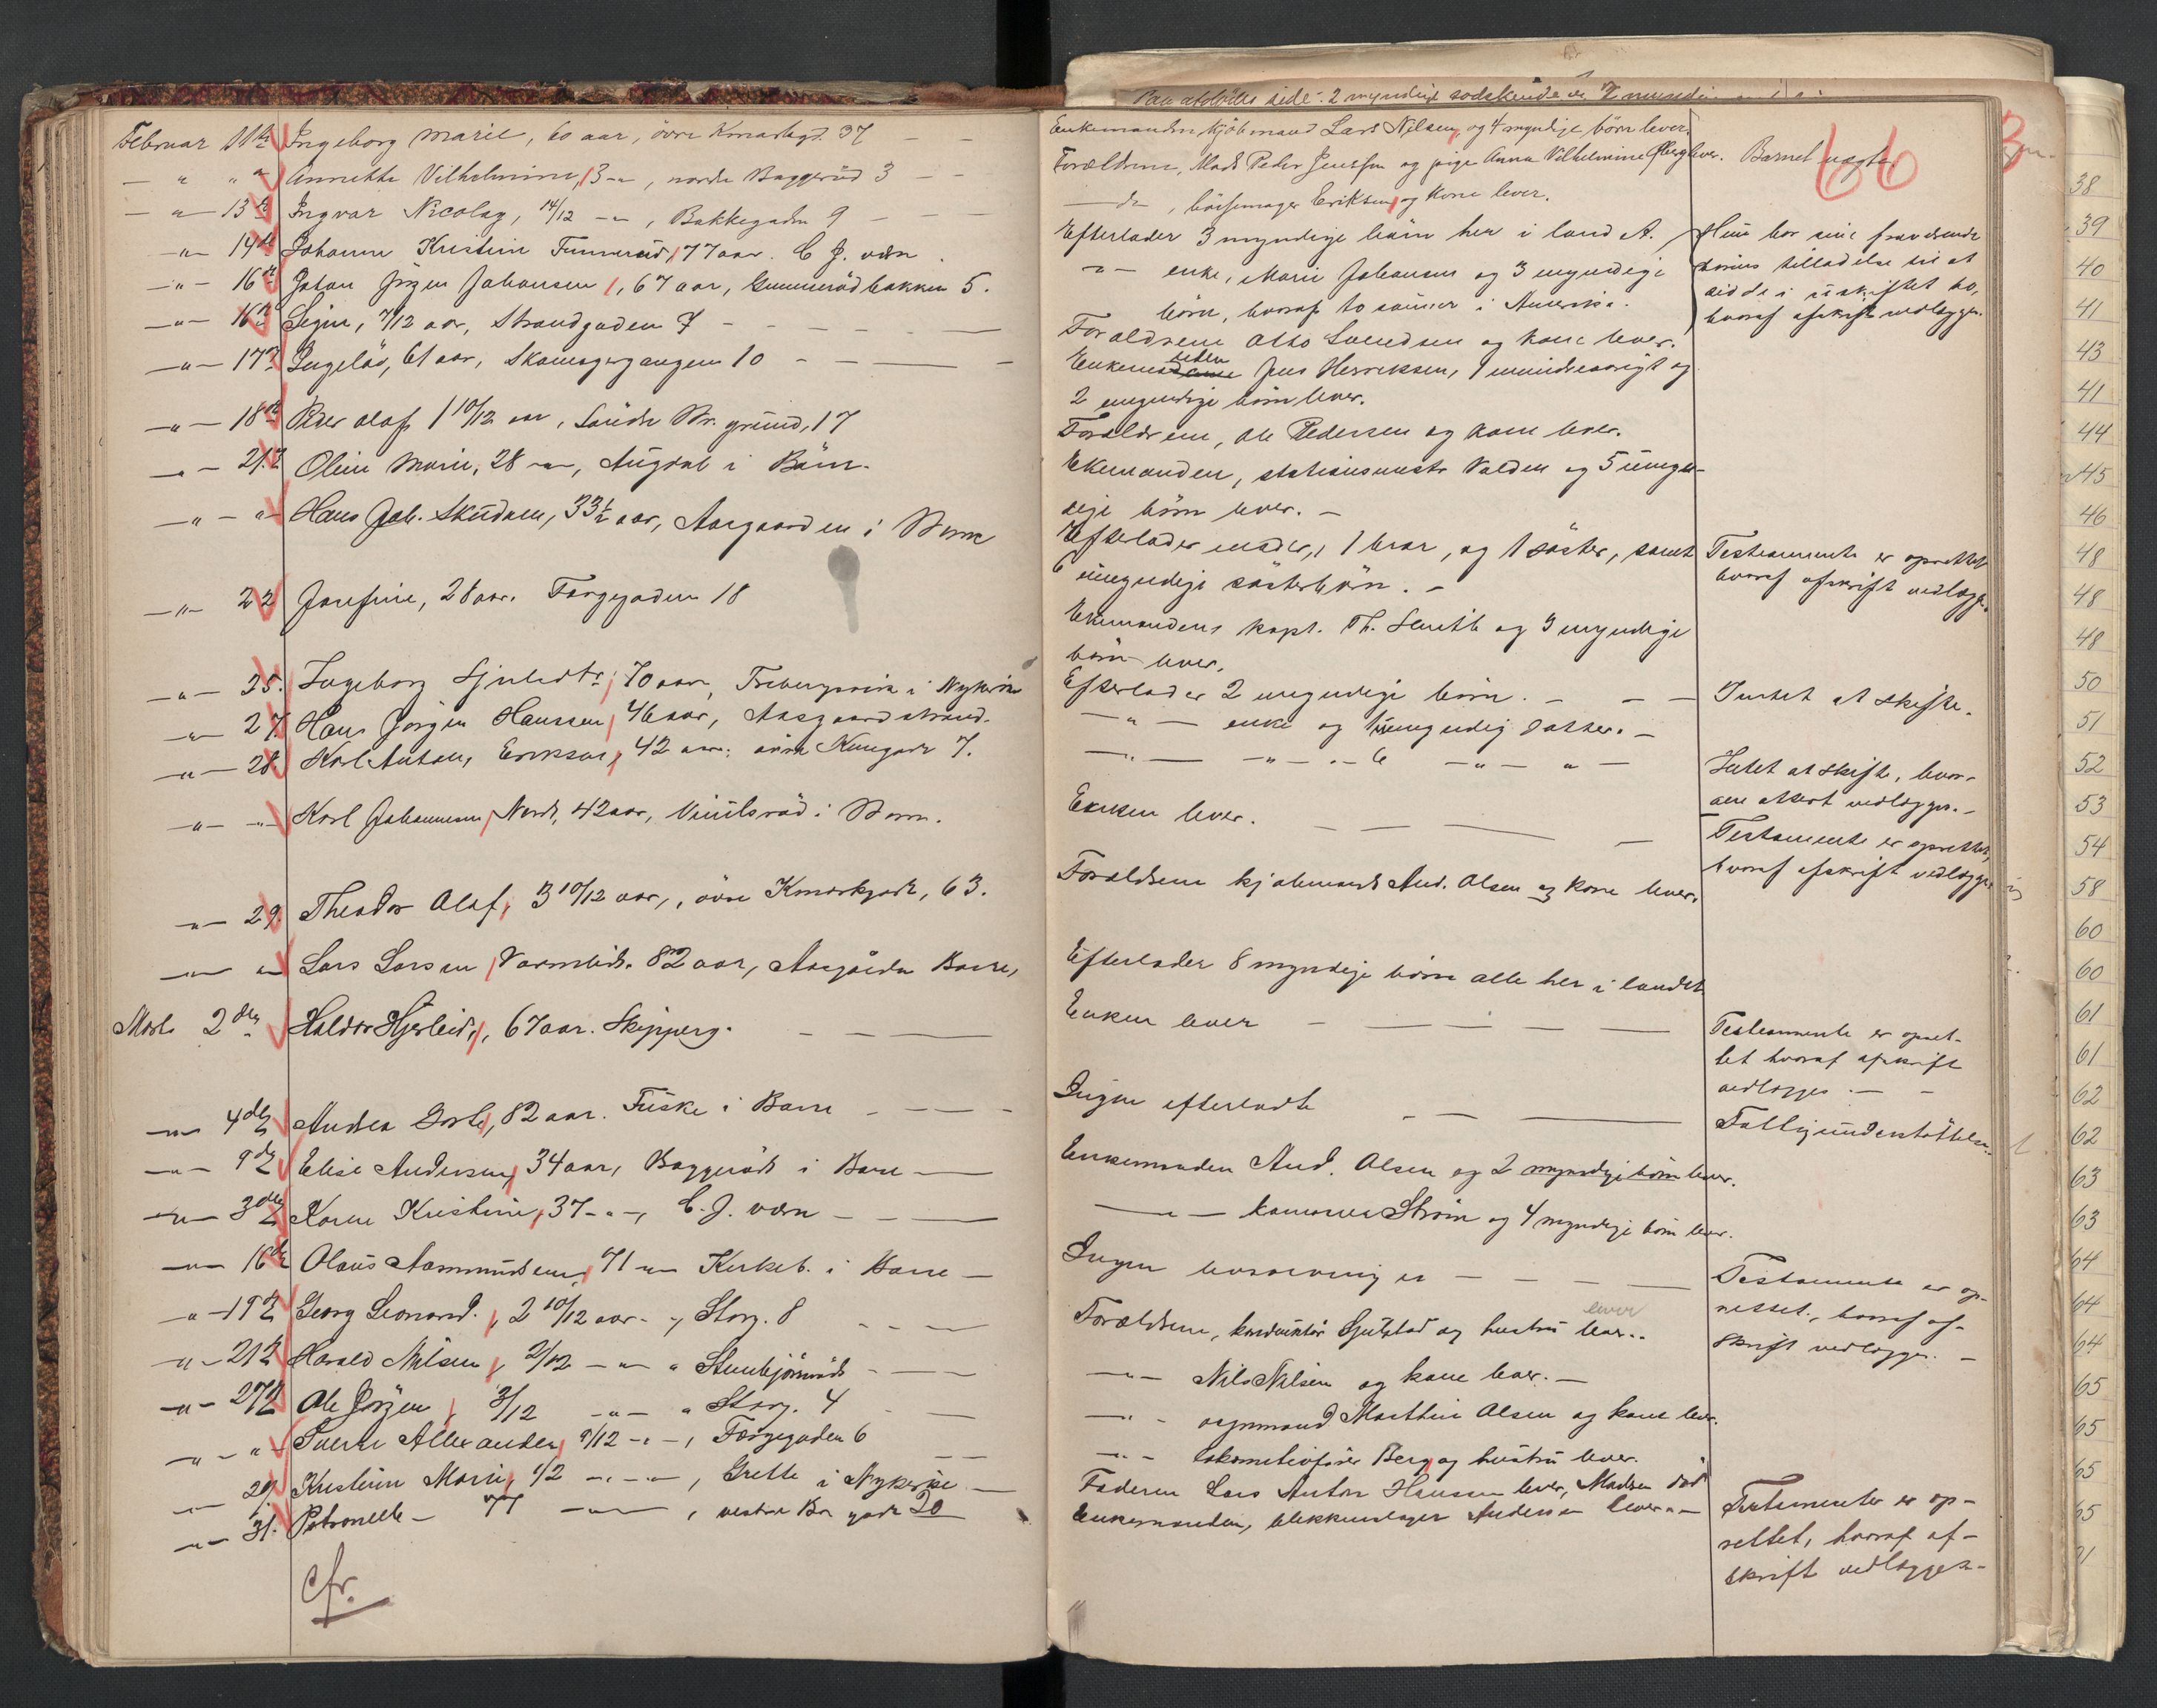 Februar 11te Ingeborg Marie, 60 aar, övre Kmarkgd. 37
— " " " Annette Vilhelmine, 3 — " , nordre Baggeröd 3
— " — 13de Ingvar Nicolay, 14/12 — " , Bakkegaden 9
— " — 14de Johanne Kristine 77 aar. C J. værn
— " — 16de Johan Jörgen Johansen, 67 aar, Gunnerödbakken 5.
— " — 16de Signe, 7/12 aar, Strandgaden 7
— " — 17de 61 aar, Skomagergangen 10
— " — 18de Peder Olaf 1 10/12 aar, Söndre 17
— " — 21de Oline Marie, 28 — " , i Börre.
— " — " — Hans Joh. 33½ aar, Aasgaarden i Borre
— " — 22 Josefine, 28 aar. Fargegaden 18
— " — 25. Ingeborg 70 aar, i Nykirke
— " — 27. Hans Jörgen Hanssen, 46 aar, Aasgaardstrand.
— " — 28. Karl Anton Eriksen, 42 aar, övre 7.
— " — " — Karl Johannesen Nord, 42 aar, i Borre.
— " — 29. Theodor Olaf, 3 10/12 aar, övre Kmarkgade, 63.
— " — " Lars Larsen 82 aar, Aasgården Borre,
Marts 2den Haldor 67 aar. Skipperg.
— " — 4de Andrea 82 aar. Fuske i Borre
— " — 9de Elise Andersen, 34 aar, Baggeröd i Borre
— " — 3die Karen Kristine, 37 — " —, C. J. værn
— " — 16de Olaus Aammundsen, 71 — " Kirkeb. i Borre
— " — 19de Georg Leonard, 2 10/12 aar — , Storg. 8
— " — 21de Harald Nilsen, 2/12 — " — "
— " — 27de Ole Jörgen, 3/12 — " — " Storg. 4
— " — " — Sverre Allexander, 9/12 — " —, Fargegaden 6
— " — 29. Kristine Marie, 1/2 — " — " —, Grette i Nykirke
— " — 31. Petronelle — 77 — " —, vestre gade 20
cfr.
Paa afdödes side: 2 myndige sødskende
Enkemanden kjöbmand Lars Nilsen, og 4 myndige börn lever.
Forældrene, Mads Peder Jenssen og pige Anna Vilhelmine lever. Barnet uægte
66
— do — , börsemager Eriksen og kone lever.
Efterlader 3 myndige börn her i landet.
— " — enke, Marie Johansen og 3 myndige
börn, hvoraf to sönner i Amerika.
Hun har sine
börns tilladelse til at
sidde i uskiftet bo,
hvoraf afskrift vedlægges.
Forældrene Otto Svendsen og kone lever.
Enkemanden Jens Henriksen, 1 mindreaarigt og
2 myndige börn lever.
Forældrene, Ole Pedersen og kone lever.
Ekemanden, stationsmester Valden og 5 umyn-
dige börn lever. —
Efterlader 1 bror, og 1 söster, samt
6 umyndige sösterbörn. —
Testamente er oprettet
hvoraf afskrift vedlægges.
Ekemanden, kapt. Th. Smith og 3 myndige
börn lever.
Efterlader 2 myndige börn. — Intet at skifte.
— " — enke og 1 umyndig datter. —
— " — — " — " — 6 — " — " —
Intet at skifte, hvor-
om attest vedlægges. —
Enken lever.
Testamente er oprettet,
hvoraf afskrift vedlægges
Forældrene kjøbmand And. Olsen og kone lever.
Efterlader 8 myndige börn alle her i landet.
Enken lever
Testamente er opret-
tet hvoraf afskrift
vedlægges. —
Ingen efterladte
Fattigunderstöttelse.
Enkemanden And. Olsen og 2 myndige börn lever.
— " — Ström og 4 myndige börn lever.
Ingen er
Testamente er op-
rettet, hvoraf af-
skrift vedlægges. —
lever
Forældrene, konduktör og hustru lever.
— " — Nils Nilsen og kone lever. —
— " — Martin Olsen og kone lever.
— " — lokomotivförer Berg og hustru lever.
Faderen Lars Anton Hansen lever, Modren död
Enkemanden, blikkenslager Andersen lever. —
Testamente er op-
rettet, hvoraf af-
skrift vedlægges. —
38
39
40
41
43
41
44
45
46
48
48
48
50
51
52
53
54
58
60
60
61
61
62
62
63
63
64
64
64
65
65
65
65